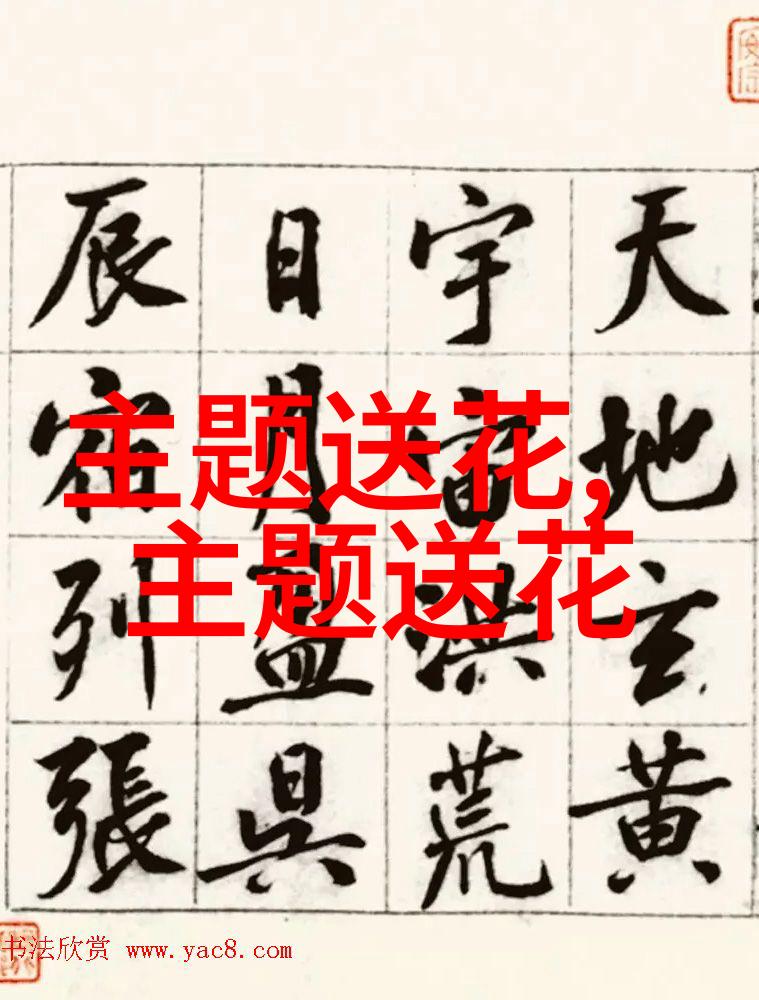 天地玄黄
宇宙洪荒
日月盈昃
辰宿列張
主题送花,
主题送花
书法欣赏 www.yac8.com